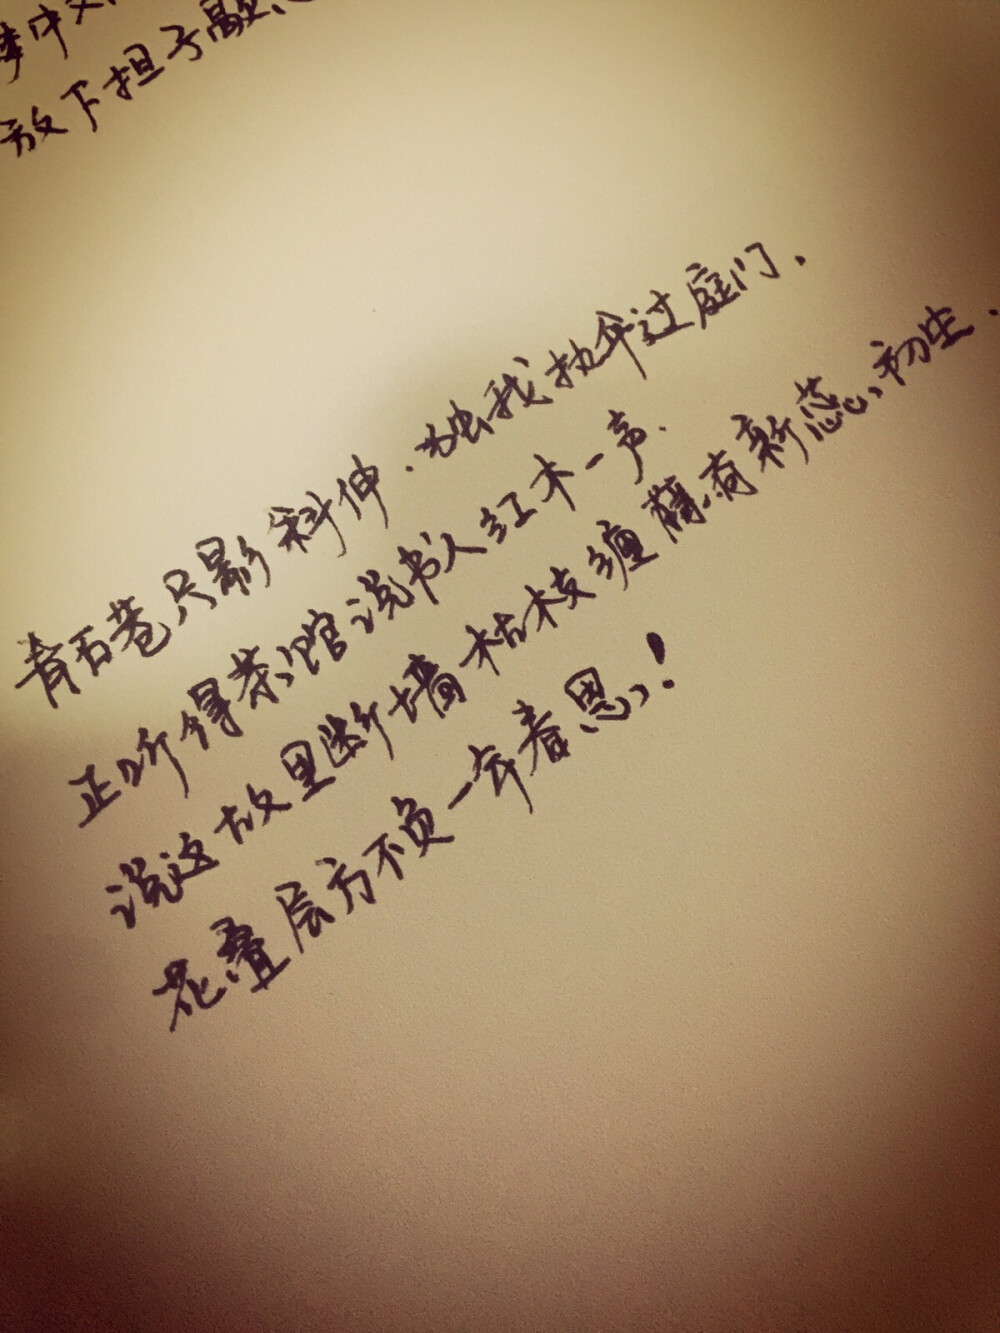 中
放下担子
青石巷只影斜伸.独我执伞过庭门.
正听得茶馆说书人红木一声.
说这故里断墙枯枝缠藤.有新蕊初生.
花叠层方不负一年春恩!